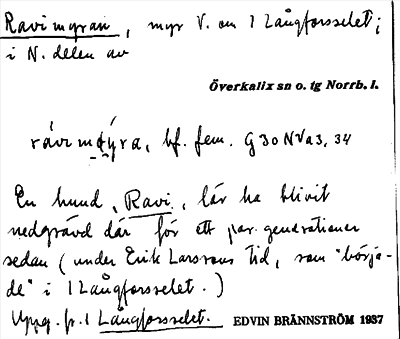 Ravimyran, myr V. om 1 Långforsselet;
i N. delen av
Överkalix sn o. tg Norrb. l.
bf. fem. G 30 N V a 3, 34
En hund, Ravi, lär ha blivit
nedgrävd där för ett par generationer
sedan (under Erik Larsvons tid, som "börja-
de" i 1 Långforsselet.)
Uppg. fr. 1 Långforsselet. EDVIN BRÄNNSTRÖM 1937